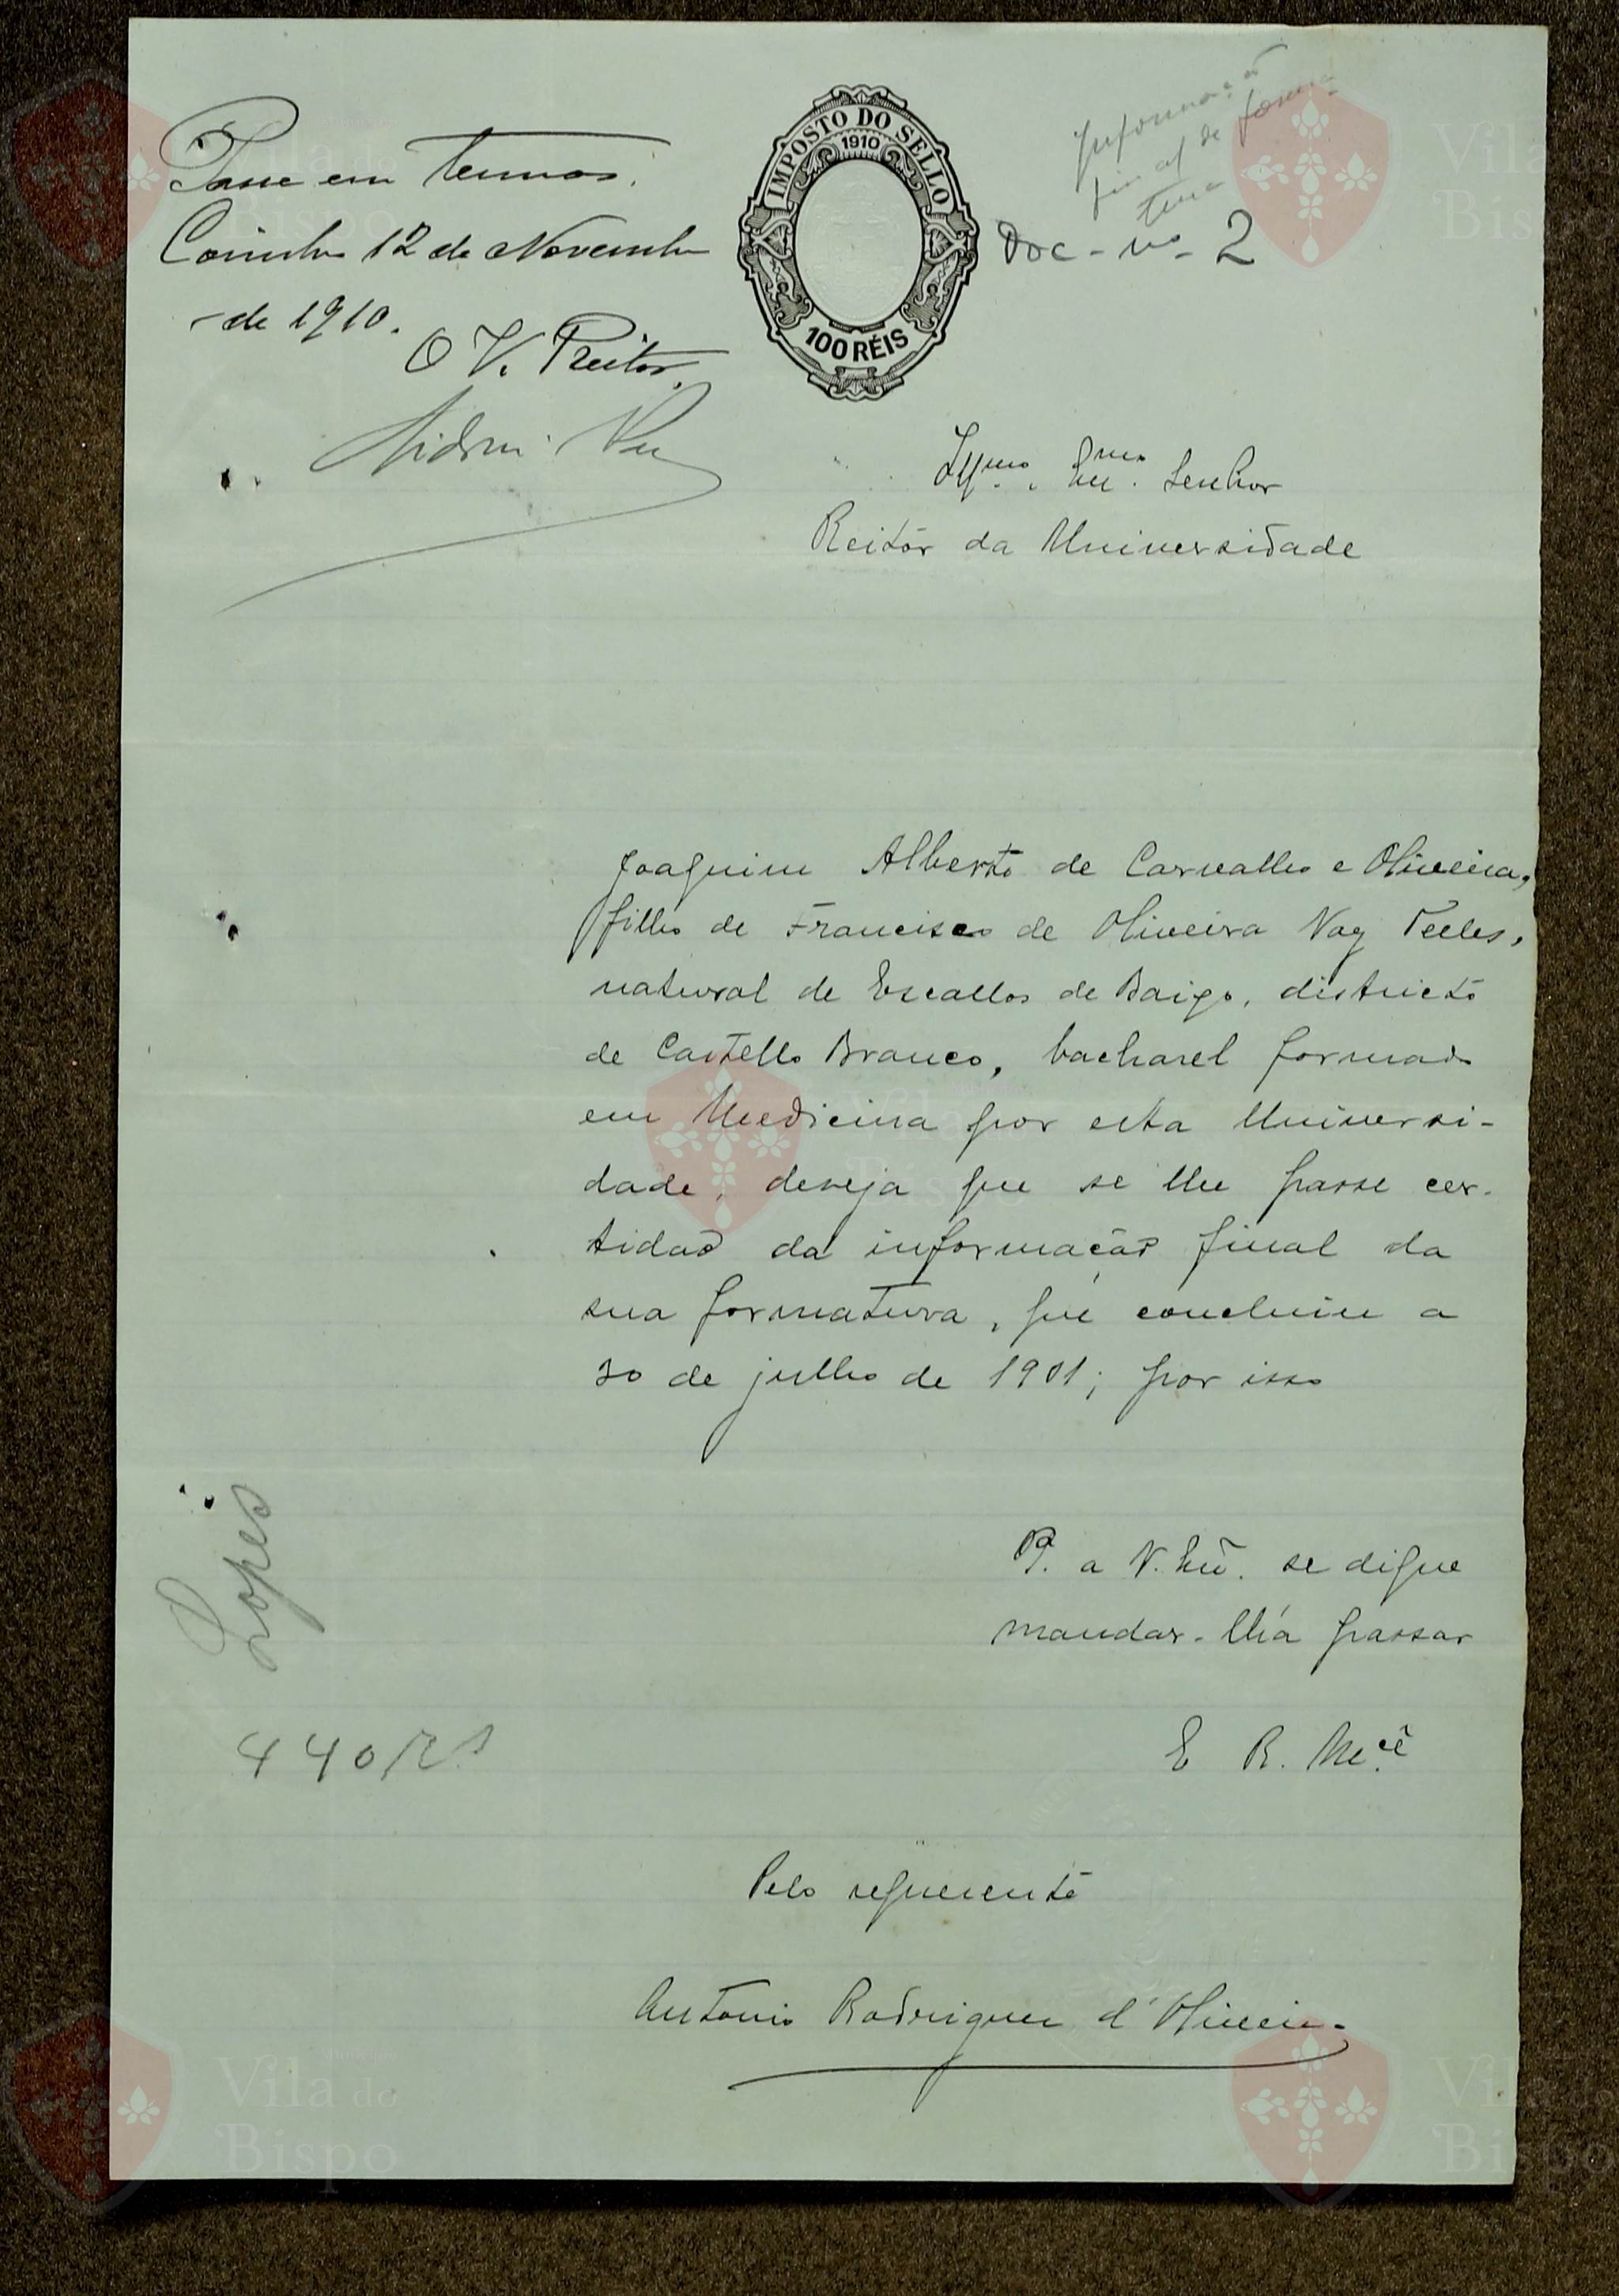 Passe em termos.
Coimbra 12 de Novembro
de 1910.
O V. Reitor
IMPOSTO DO SELLO
1910
100 RÉIS
Informação
final de forma-
tura
Doc - nº - 2
Illmo. Exmo. Senhor
Reitor da Universidade
Joaquim Alberto de Carvalho e Oliveira,
filho de Francisco de Oliveira Vaz Telles,
natural de Escallos de Baixo, districto
de Castello Branco, bacharel formado
em Medicina por esta Universi-
dade, deseja que se lhe passe cer-
tidão da informação final da
sua formatura, que concluiu a
30 de julho de 1901; por isso
P. a V. Exª. se digne
mandar-lh'a passar
E R. Mcê
Lopes
440 Rs
Pelo requerente
Antonio Rodrigues d'Oliveira
Vila do
Bispo